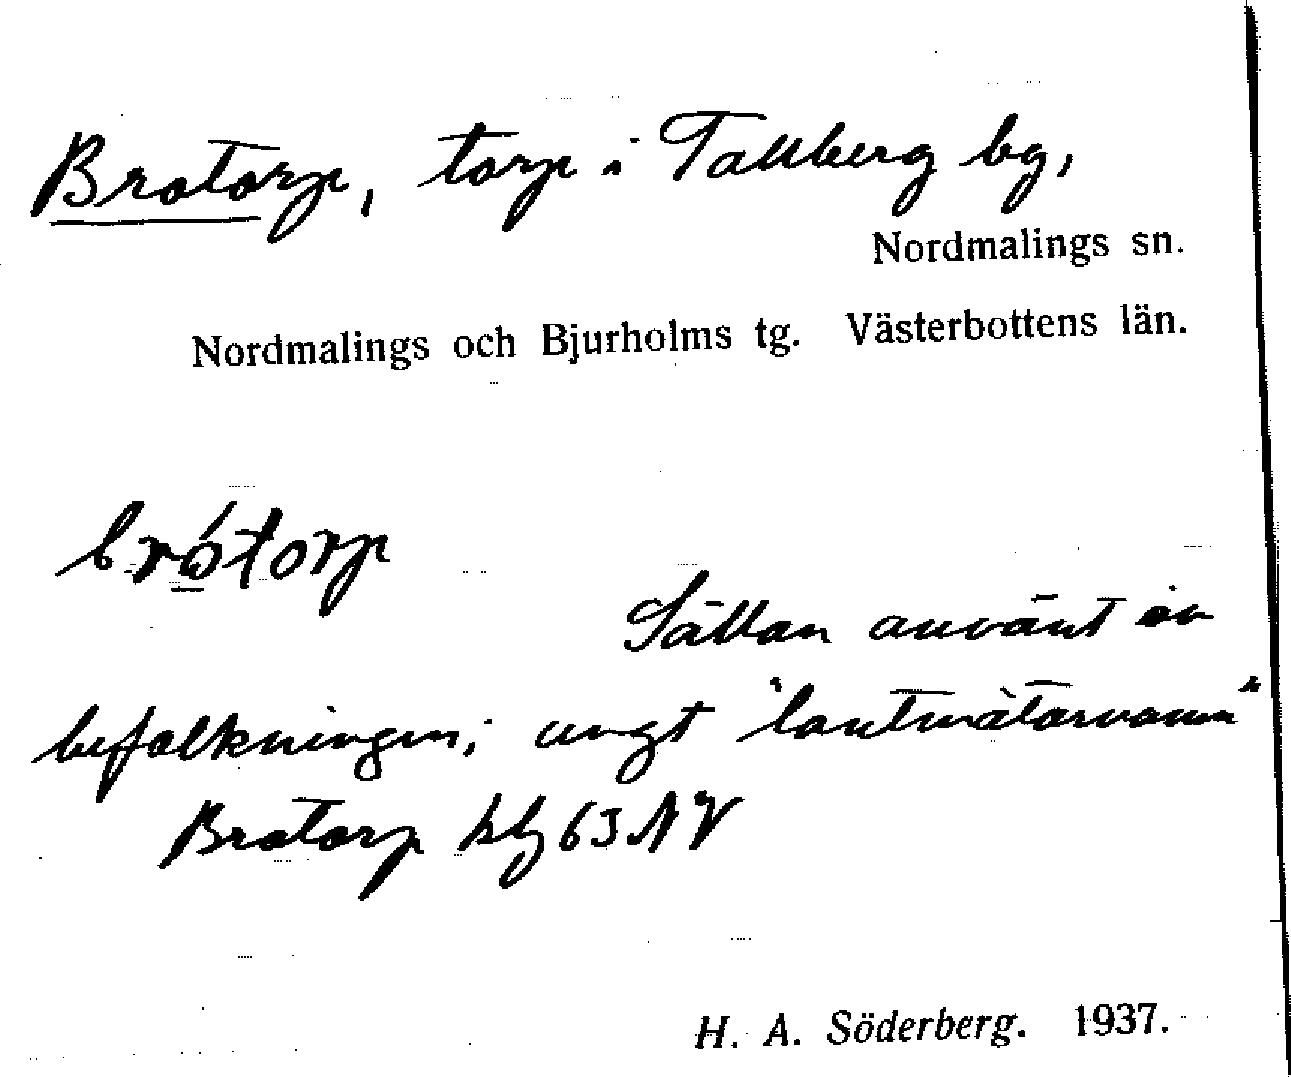 Brotorp, torp i Tallberg bg,
Nordmalings sn.
Nordmalings och Bjurholms tg. Västerbottens län.
brótorp
Sällan använt av
befolkningen; ungt "lantmätarnamn"
Brotorp hbg 63 NV
H. A. Söderberg. 1937.